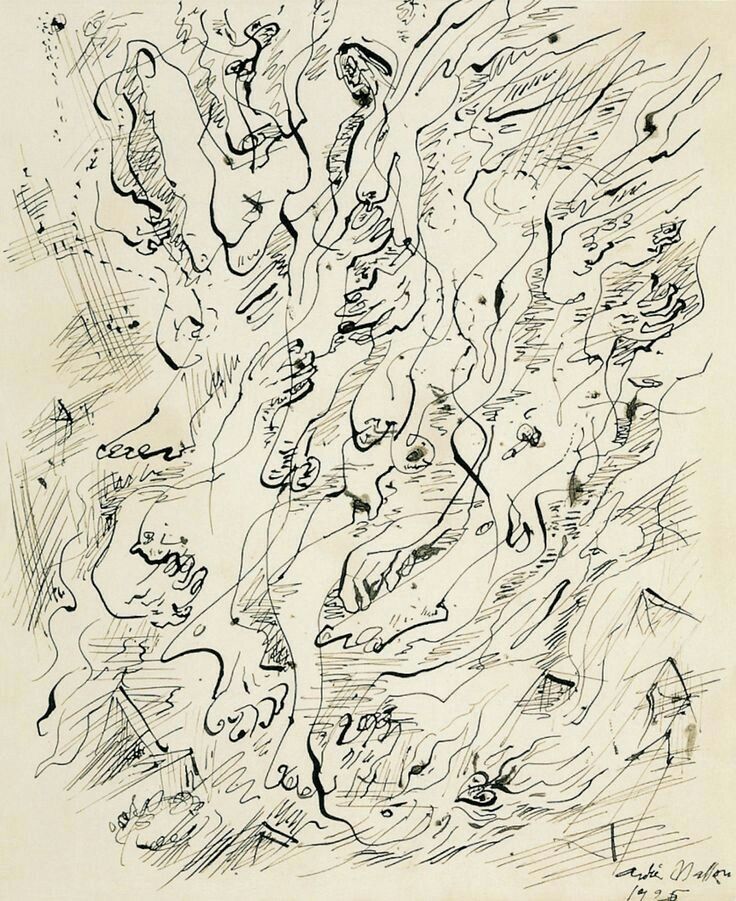 André Masson
1925